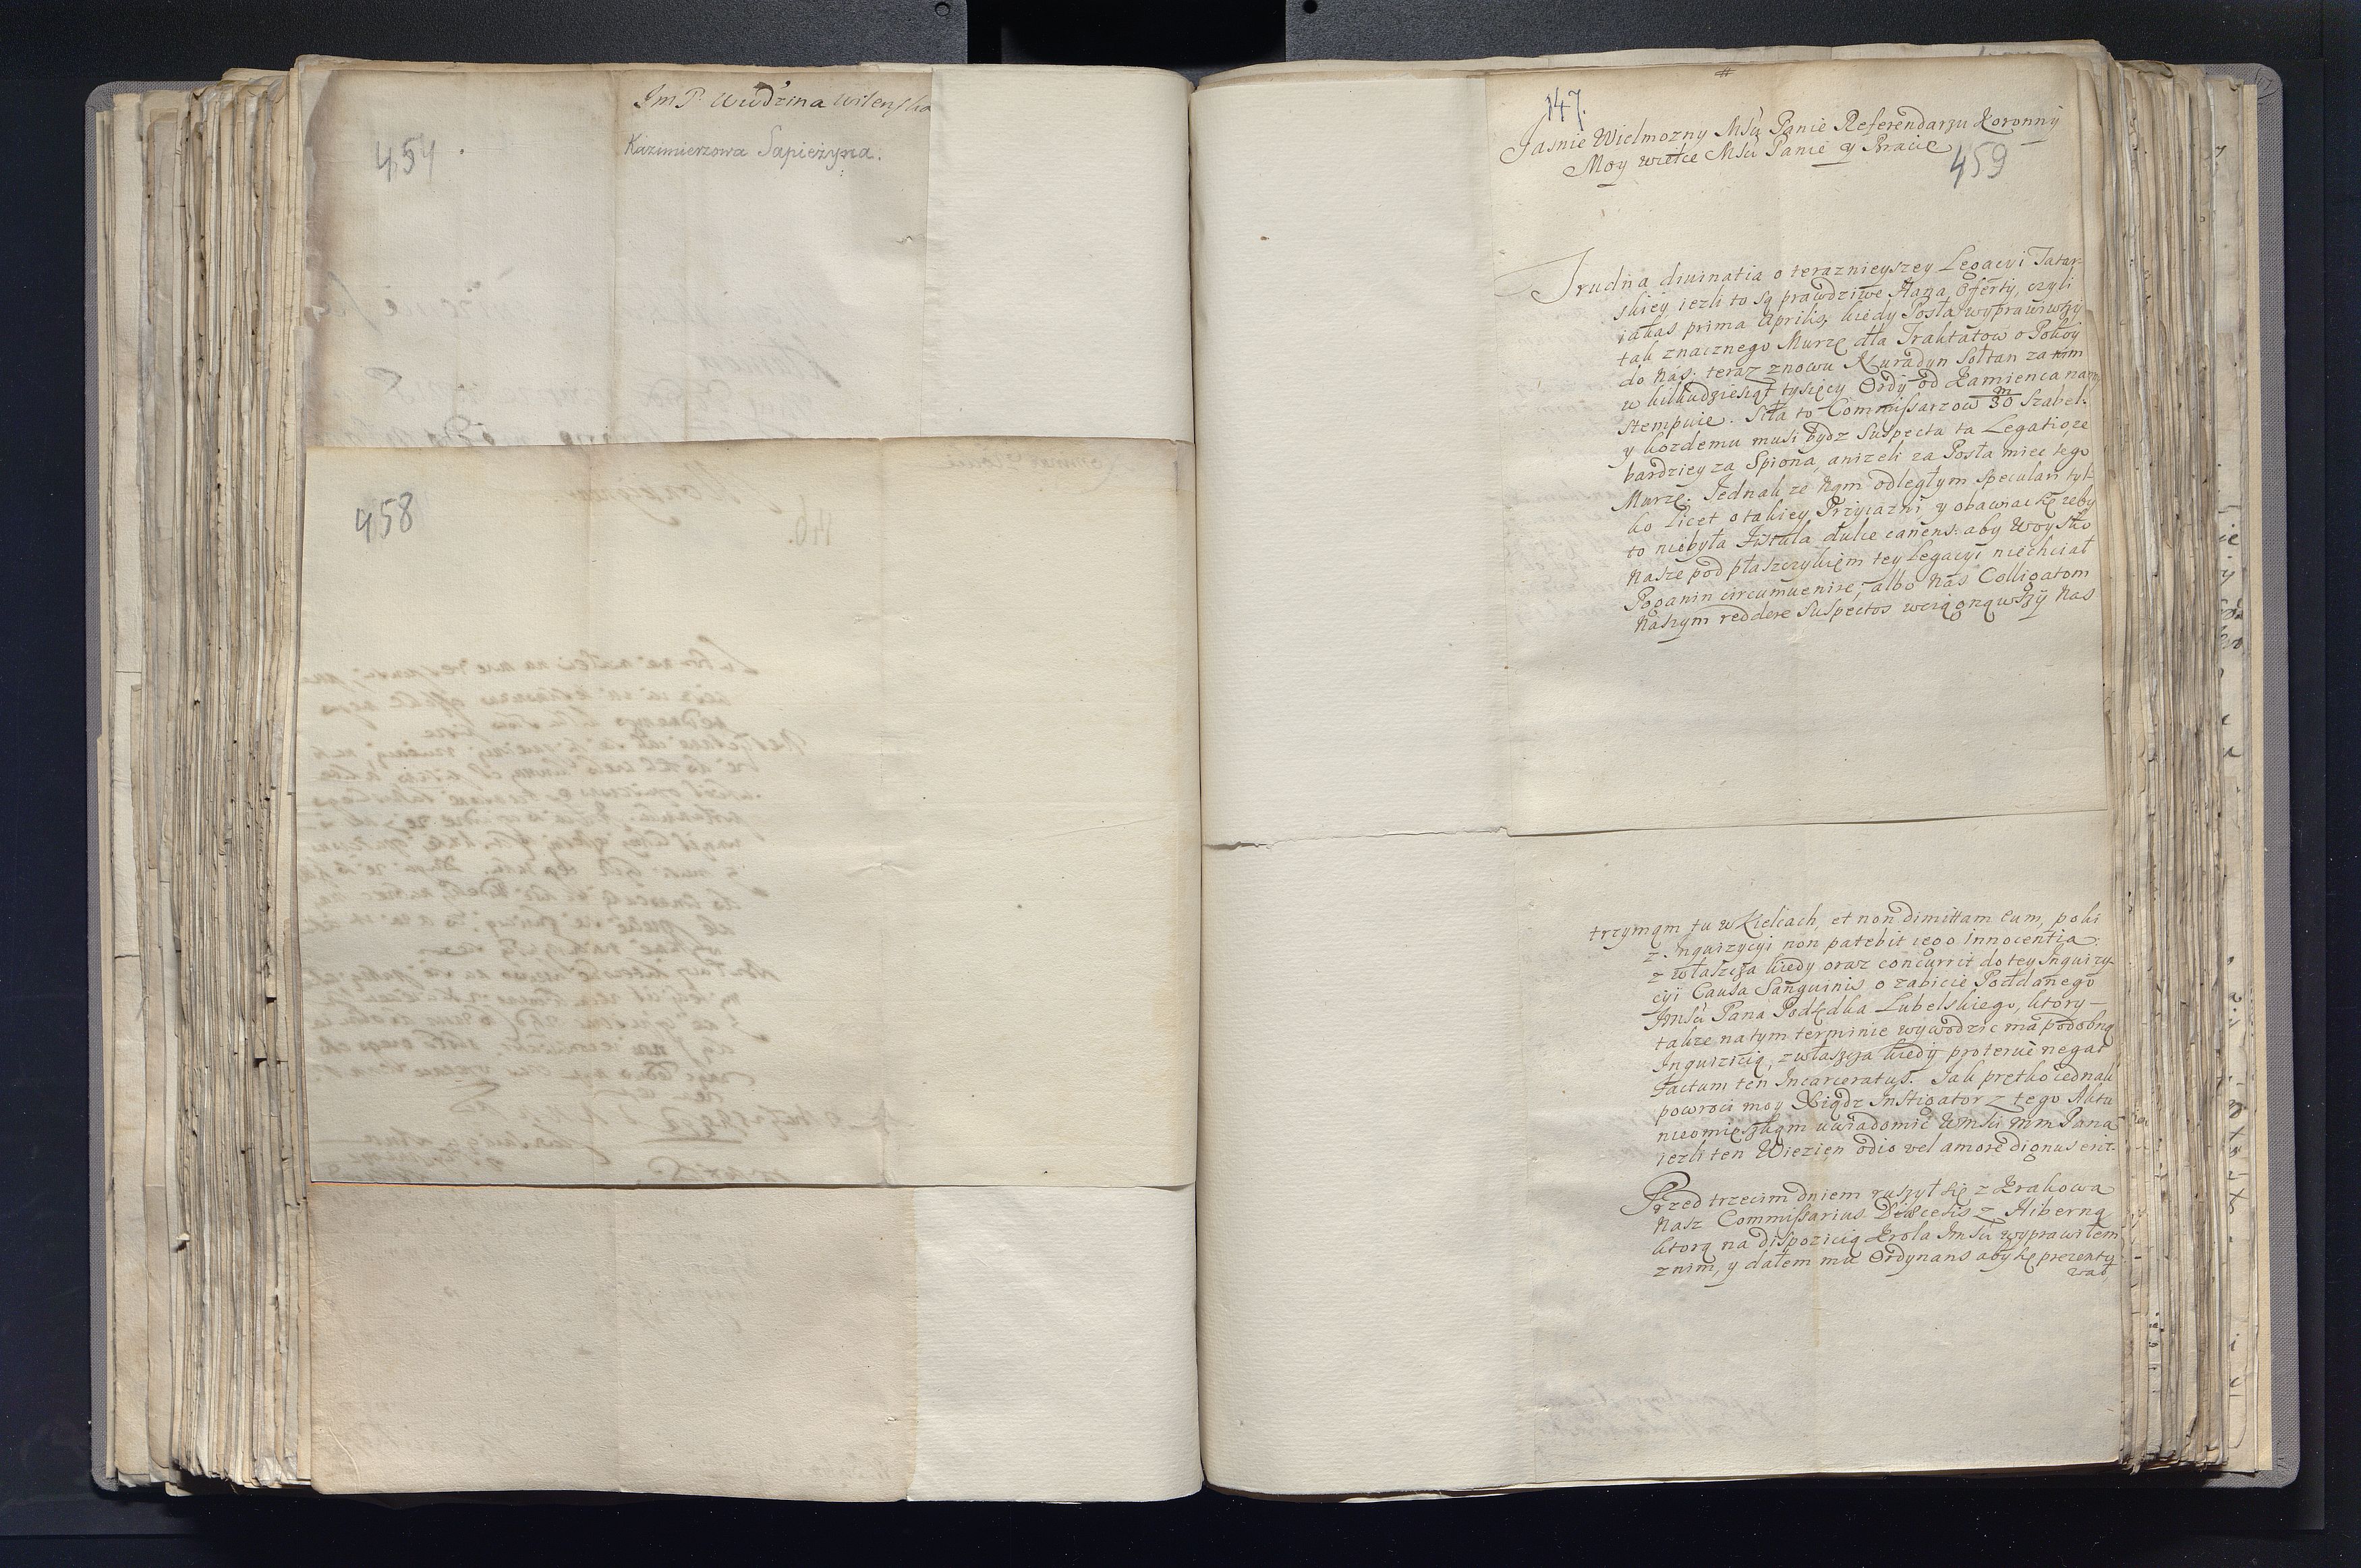 JmP. Wwdzina Wilenska
454.
Kazimierzowa Sapieżyna.
458
147.
Jasnie Wielmozny Msći Panie Referendarzu Koronny
Moy wielce Msći Panie y Bracie
459
Trudna diuinatia o teraznieyszey Legacyi Tatar-
skiey, iezli to są prawdziwe Hana Oferty, czyli
iakas prima Aprilis, kiedy Posła wyprawiwszy
tak znacznego Murzę dla Traktatow o Pokoy
do Nas, teraz znowu Nuradyn Sołtan za nim
w kilkudziesiąt tysięcy Ordy od Kamienca na
stempuie. Siła to Commissarzow 30 Szabel.
y kozdemu musi bydz suspecta ta Legatio, ze
bardziey za Spiona, anizeli za Posła miec tego
Murzę. Jednak ze nam odległym speculari tyl-
ko licet o takiey Przyiazni, y obawiac się zeby
to niebyła fistula dulce canens: aby Woysko
Nasze pod płaszczykiem tey Legacyi niechciał
Poganin circumuenire, albo Nas Colligatom
Naszym reddere suspectos wciągnąwszy Nas
trzymąm tu w Kielcach, et non dimittam eum, poki
z Inquizycyi non patebit iego innocentia.
z właszcza kiedy oraz concurrit do tey Inquizy-
cyi Causa Sanguinis o zabicie Poddanego
Jmśći Pana Podsędka Lubelskiego, ktory
takze na tym terminie wywodzic ma podobną
Inquizicią, zwłaszcza kiedy proterue negat
factum ten Incarceratus. Jak prętko iednak
powroci moy Xiądz Instigator z tego Aktu
nieomieszkąm uwiadomic Wmśći mm Pana
iezli ten Wiezien odio vel amore dignus erit.
Przed trzecim dniem ruszył się z Krakowa
Nasz Commissarius Diæcesis z Hiberną
ktorą na dispozicią Krola Jmśći wyprawiłem
z nim, y dałem mu Ordynans aby się prezenty
wał,